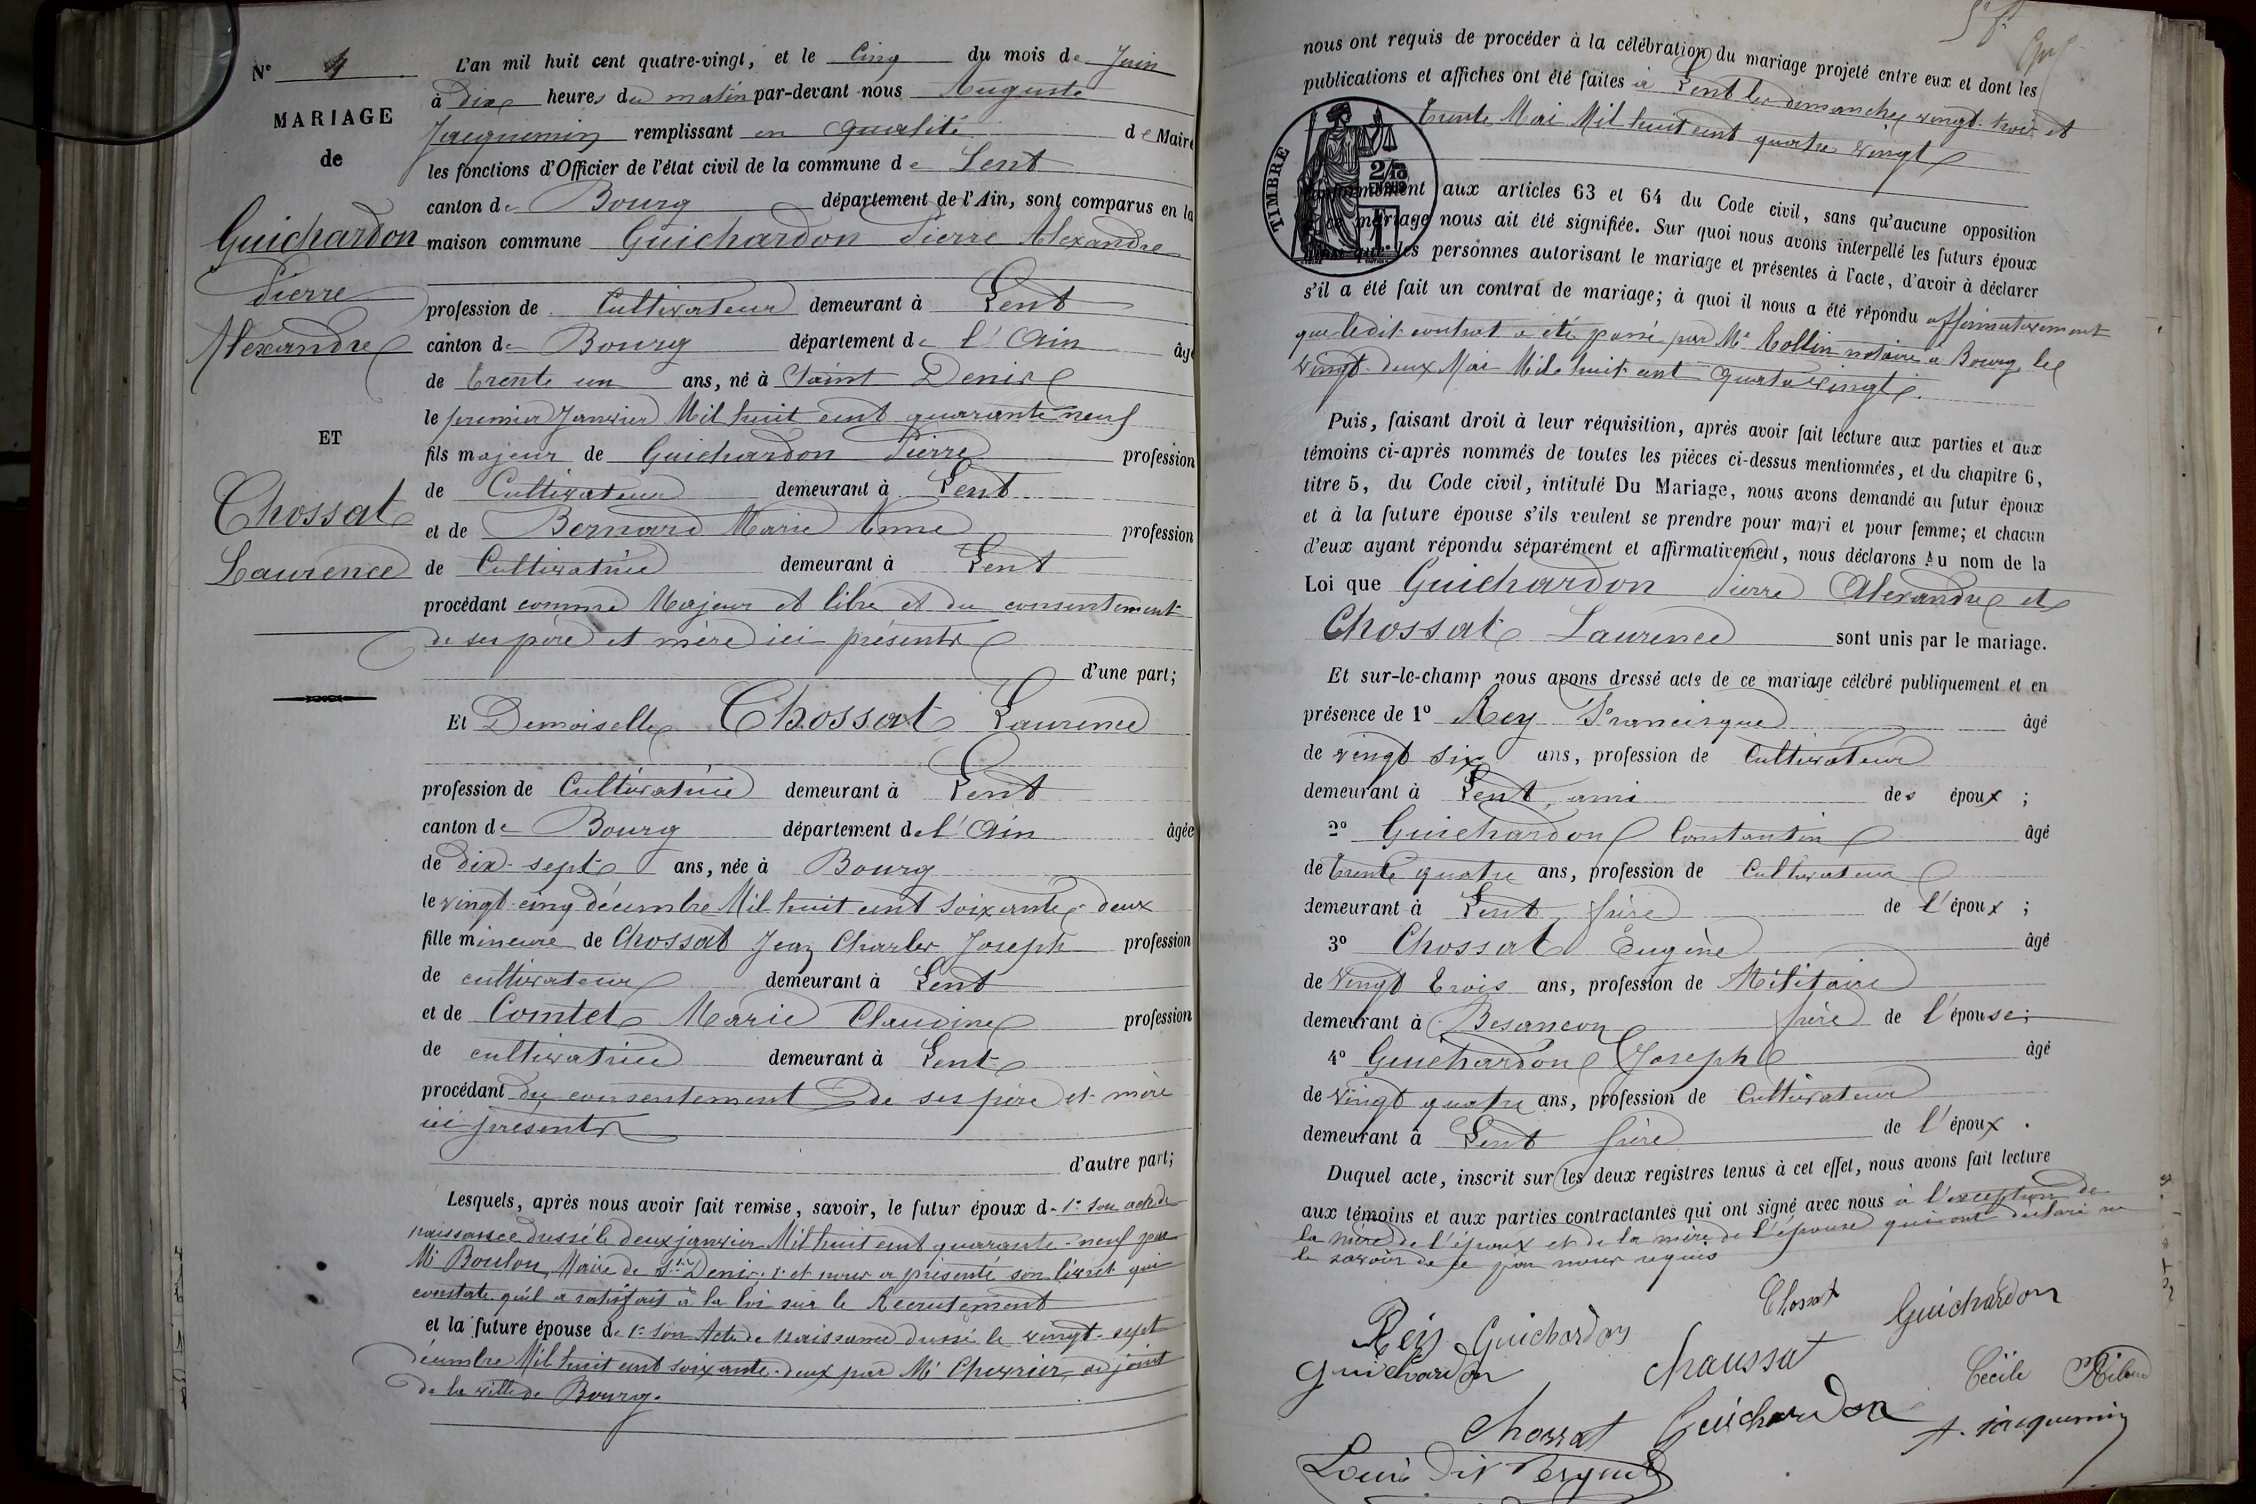 N° 4
MARIAGE
de
Guichardon
Pierre
Alexandre
ET
Chossat
Laurence
L'an mil huit cent quatre-vingt, et le Cinq du mois de Juin
à Dix heures du matin par-devant nous Auguste
Jacquemin remplissant en qualité de Maire
les fonctions d'Officier de l'état civil de la commune de Lent
canton de Bourg département de l'Ain, sont comparus en la
maison commune Guichardon Pierre Alexandre
profession de Cultivateur demeurant à Lent
canton de Bourg département de l'Ain âgé
de trente un ans, né à Saint Denis
le premier Janvier Mil huit cent quarante neuf
fils majeur de Guichardon Pierre profession
de Cultivateur demeurant à Lent
et de Bernard Marie Anne profession
de Cultivatrice demeurant à Lent
procédant comme Majeur et libre et du consentement
de ses père et mère ici présents
d'une part;
Et Demoiselle Chossat Laurence
profession de Cultivatrice demeurant à Lent
canton de Bourg département de l'Ain âgée
de dix-sept ans, née à Bourg
le vingt-cinq décembre Mil huit cent soixante-deux
fille mineure de Chossat Jean Charles Joseph profession
de cultivateur demeurant à Lent
et de Comtet Marie Claudine profession
de cultivatrice demeurant à Lent
procédant du consentement de ses père et mère
ici présents
d'autre part;
Lesquels, après nous avoir fait remise, savoir, le futur époux de 1° son acte de
naissance dressé le deux janvier Mil huit cent quarante-neuf par
Mr Boulon, Maire de St Denis; 2° et nous a présenté son livret qui
constate qu'il a satisfait à la loi sur le Recrutement
et la future épouse de 1° son Acte de naissance dressé le vingt-sept
décembre Mil huit cent soixante-deux par Mr Chevrier, adjoint
de la ville de Bourg.
nous ont requis de procéder à la célébration du mariage projeté entre eux et dont les
publications et affiches ont été faites à Lent les dimanches vingt-trois et
trente Mai Mil huit cent quatre vingt
TIMBRE
aux articles 63 et 64 du Code civil, sans qu'aucune opposition
mariage nous ait été signifiée. Sur quoi nous avons interpellé les futurs époux
que les personnes autorisant le mariage et présentes à l'acte, d'avoir à déclarer
s'il a été fait un contrat de mariage; à quoi il nous a été répondu affirmativement
que ledit contrat a été passé par Me Rollin notaire à Bourg le
vingt-deux Mai Mil huit cent quatre vingt.
Puis, faisant droit à leur réquisition, après avoir fait lecture aux parties et aux
témoins ci-après nommés de toutes les pièces ci-dessus mentionnées, et du chapitre 6,
titre 5, du Code civil, intitulé Du Mariage, nous avons demandé au futur époux
et à la future épouse s'ils veulent se prendre pour mari et pour femme; et chacun
d'eux ayant répondu séparément et affirmativement, nous déclarons Au nom de la
Loi que Guichardon Pierre Alexandre et
Chossat Laurence sont unis par le mariage.
Et sur-le-champ nous avons dressé acte de ce mariage célébré publiquement et en
présence de 1° Rey Francisque âgé
de vingt six ans, profession de Cultivateur
demeurant à Lent, ami des époux;
2° Guichardon Constantin âgé
de trente quatre ans, profession de Cultivateur
demeurant à Lent, frère de l'époux;
3° Chossat Eugène âgé
de Vingt trois ans, profession de Militaire
demeurant à Besançon frère de l'épouse;
4° Guichardon Joseph âgé
de vingt quatre ans, profession de Cultivateur
demeurant à Lent frère de l'époux.
Duquel acte, inscrit sur les deux registres tenus à cet effet, nous avons fait lecture
aux témoins et aux parties contractantes qui ont signé avec nous à l'exception de
la mère de l'époux et de la mère de l'épouse qui ont déclaré ne
le savoir de ce par nous requis
Chossat Guichardon
Rey Guichardon
Guichardon Chaussat Cécile
Chossat Guichardon A. Jacquemin
Louis